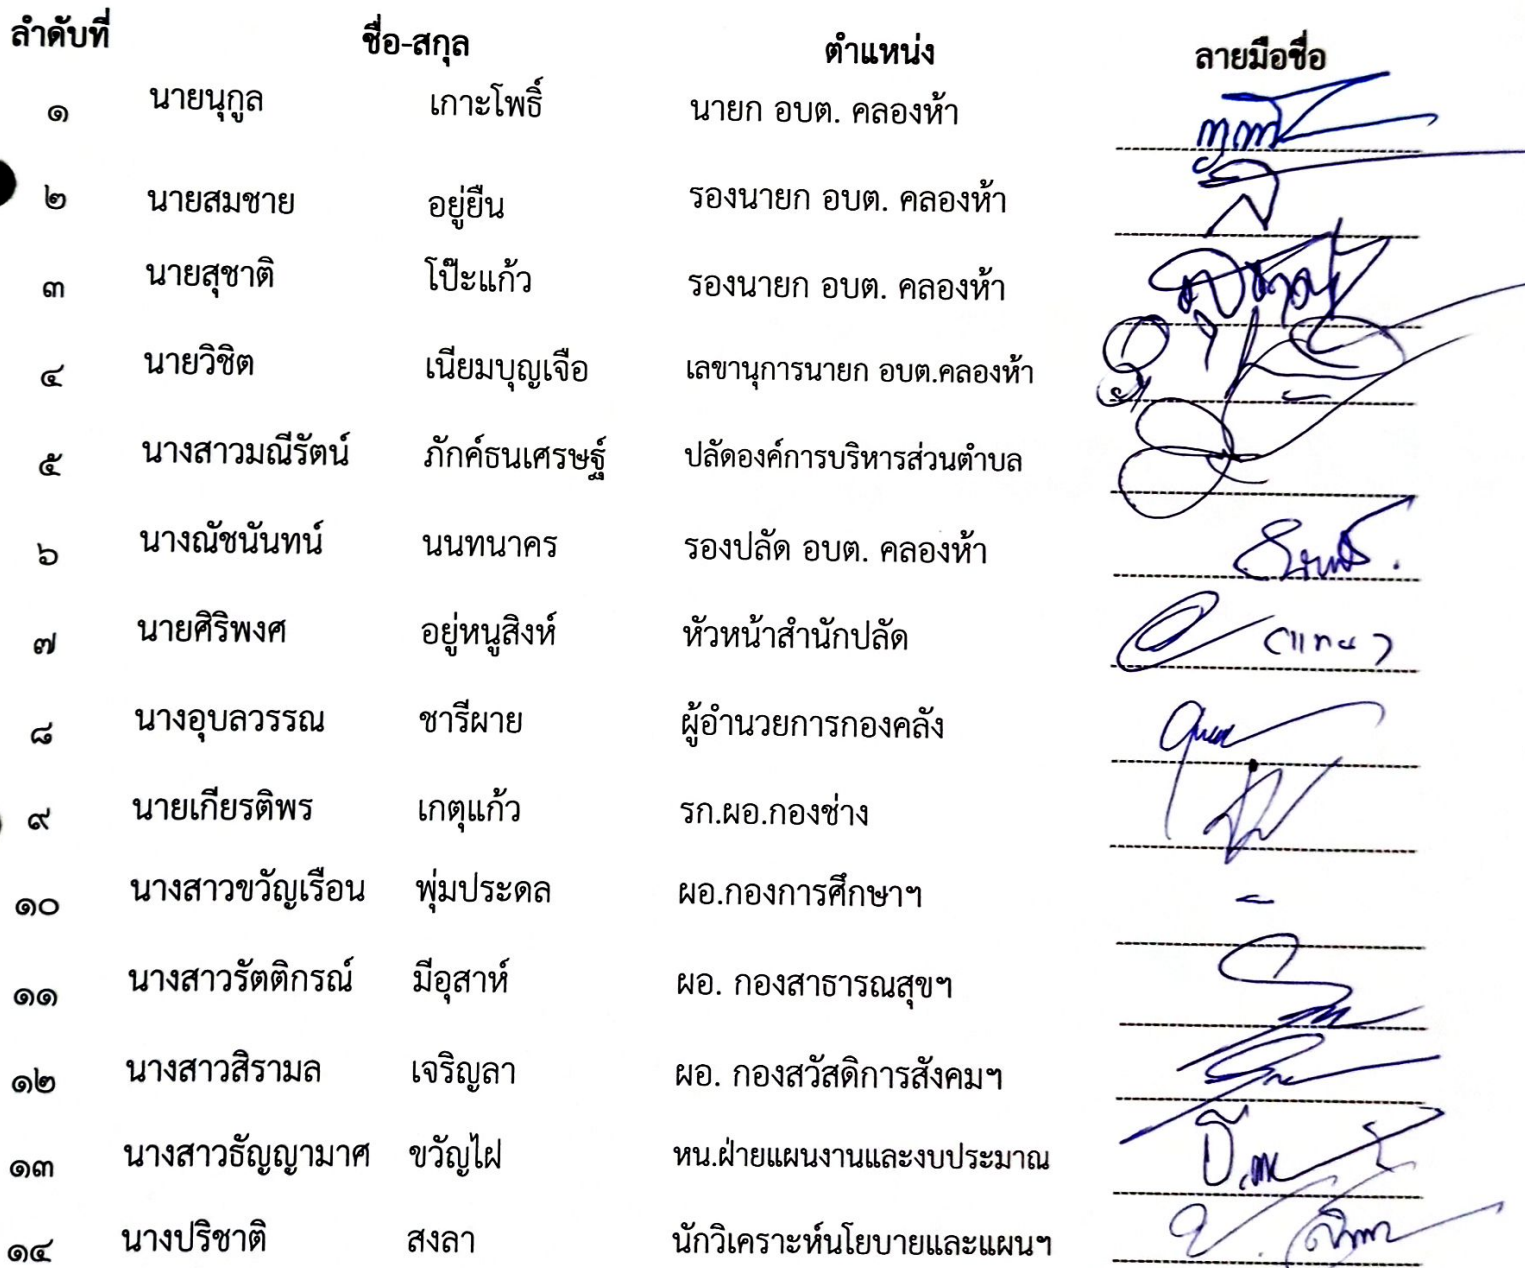 ลำดับที่ ชื่อ-สกุล ตำแหน่ง ลายมือชื่อ
๑ นายนุกูล เกาะโพธิ์ นายก อบต. คลองห้า
๒ นายสมชาย อยู่ยืน รองนายก อบต. คลองห้า
๓ นายสุชาติ โป๊ะแก้ว รองนายก อบต. คลองห้า
๔ นายวิชิต เนียมบุญเจือ เลขานุการนายก อบต.คลองห้า
๕ นางสาวมณีรัตน์ ภักค์ธนเศรษฐ์ ปลัดองค์การบริหารส่วนตำบล
๖ นางณัชนันทน์ นนทนาคร รองปลัด อบต. คลองห้า
๗ นายศิริพงศ อยู่หนูสิงห์ หัวหน้าสำนักปลัด (แทน)
๘ นางอุบลวรรณ ชารีผาย ผู้อำนวยการกองคลัง
๙ นายเกียรติพร เกตุแก้ว รก.ผอ.กองช่าง
๑๐ นางสาวขวัญเรือน พุ่มประดล ผอ.กองการศึกษาฯ -
๑๑ นางสาวรัตติกรณ์ มีอุสาห์ ผอ. กองสาธารณสุขฯ
๑๒ นางสาวสิรามล เจริญลา ผอ. กองสวัสดิการสังคมฯ
๑๓ นางสาวธัญญามาศ ขวัญไฝ หน.ฝ่ายแผนงานและงบประมาณ
๑๔ นางปริชาติ สงลา นักวิเคราะห์นโยบายและแผนฯ